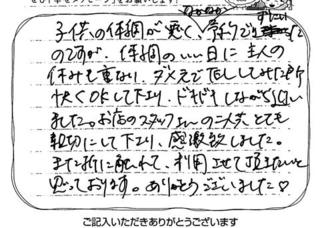 子供の体調が悪く、
のですが、体調のいい日に主人の
休みも重なり、ダメ元で
快くOKして下さり、ドキドキしながら
ました。お店のスタッフさんの とても
親切にして下さり、感激致しました。
また折に触れて、利用させて頂きたいと
思っております。ありがとうございました♡
ご記入いただきありがとうございます